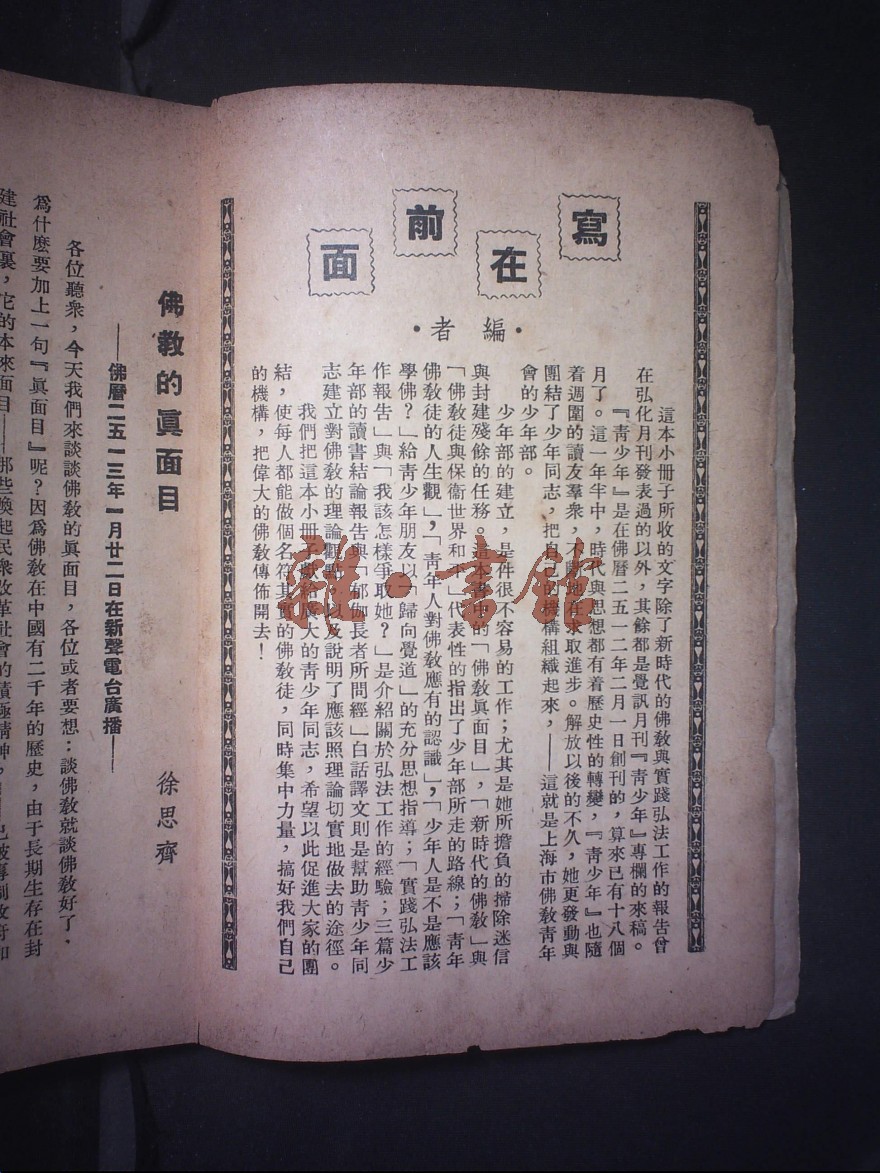 寫在前面
·編者·
這本小冊子所收的文字除了新時代的佛教與實踐弘法工作的報告曾
在弘化月刊發表過的以外，其餘都是覺訊月刊『青少年』專欄的來稿。
『青少年』是在佛曆二五一二年二月一日創刊的，算來已有十八個
月了。這一年半中，時代與思想都有着歷史性的轉變，『青少年』也隨
着週圍的讀友羣衆，不斷地在求取進步。解放以後的不久，她更發動與
團結了少年同志，把自己的機構組織起來，——這就是上海市佛教青年
會的少年部。
少年部的建立，是件很不容易的工作；尤其是她所擔負的掃除迷信
與封建殘餘的任務。這本書中的「佛教眞面目」，「新時代的佛教」與
「佛教徒與保衞世界和平」代表性的指出了少年部所走的路線；「青年
佛教徒的人生觀」，「青年人對佛教應有的認識」，「少年人是不是應該
學佛？」給青少年朋友以「歸向覺道」的充分思想指導；「實踐弘法工
作報告」與「我該怎樣爭取她？」是介紹關於弘法工作的經驗；三篇少
年部的讀書結論報告與「郁伽長者所問經」白話譯文則是幫助青少年同
志建立對佛教的理論觀點，以及說明了應該照理論切實地做去的途徑。
我們把這本小冊子獻給廣大的青少年同志，希望以此促進大家的團
結，使每人都能做個名符其實的佛教徒，同時集中力量，搞好我們自己
的機構，把偉大的佛教傳佈開去！
佛教的眞面目
徐思齊
——佛曆二五一三年一月廿二日在新聲電台廣播——
各位聽衆，今天我們來談談佛教的眞面目，各位或者要想：談佛教就談佛教好了，
爲什麽要加上一句『眞面目』呢？因爲佛教在中國有二千年的歷史，由于長期生存在封
建社會裏，它的本來面目——那些喚起民衆改革社會的積極精神，
雅·書館